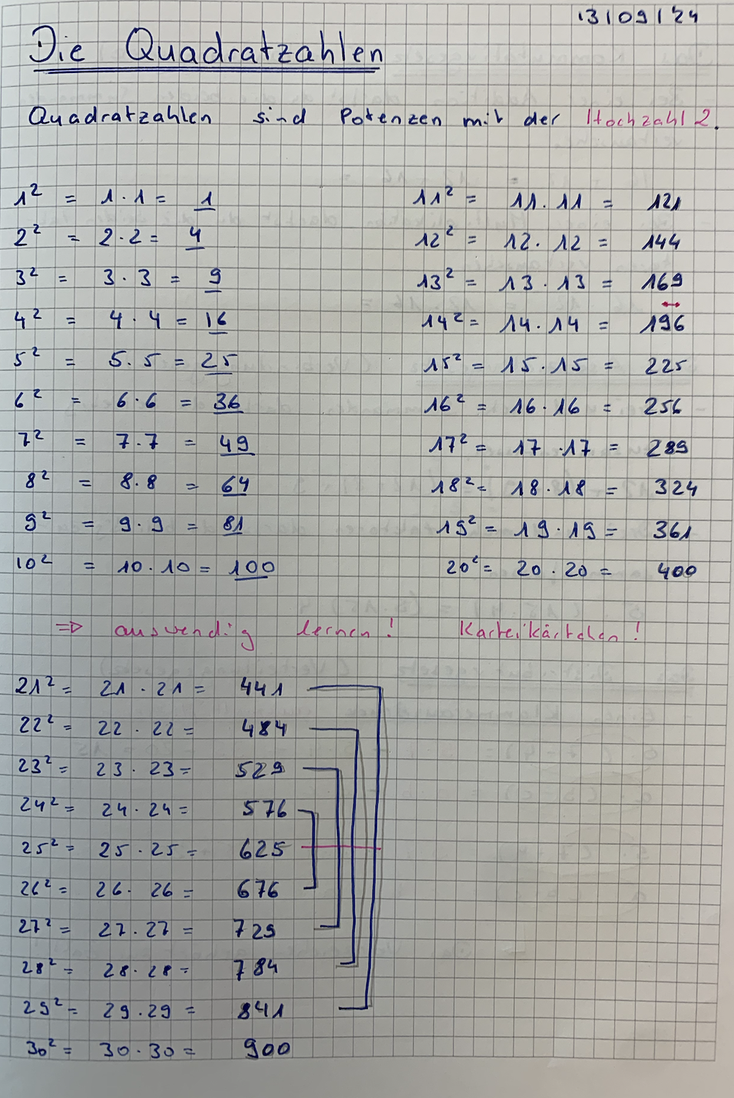 13/09/24
Die Quadratzahlen
Quadratzahlen sind Potenzen mit der Hochzahl 2.
1² = 1 · 1 = 1
2² = 2 · 2 = 4
3² = 3 · 3 = 9
4² = 4 · 4 = 16
5² = 5 · 5 = 25
6² = 6 · 6 = 36
7² = 7 · 7 = 49
8² = 8 · 8 = 64
9² = 9 · 9 = 81
10² = 10 · 10 = 100
11² = 11 · 11 = 121
12² = 12 · 12 = 144
13² = 13 · 13 = 169
14² = 14 · 14 = 196
15² = 15 · 15 = 225
16² = 16 · 16 = 256
17² = 17 · 17 = 289
18² = 18 · 18 = 324
19² = 19 · 19 = 361
20² = 20 · 20 = 400
⇒ auswendig lernen! Karteikärtchen!
21² = 21 · 21 = 441
22² = 22 · 22 = 484
23² = 23 · 23 = 529
24² = 24 · 24 = 576
25² = 25 · 25 = 625
26² = 26 · 26 = 676
27² = 27 · 27 = 729
28² = 28 · 28 = 784
29² = 29 · 29 = 841
30² = 30 · 30 = 900